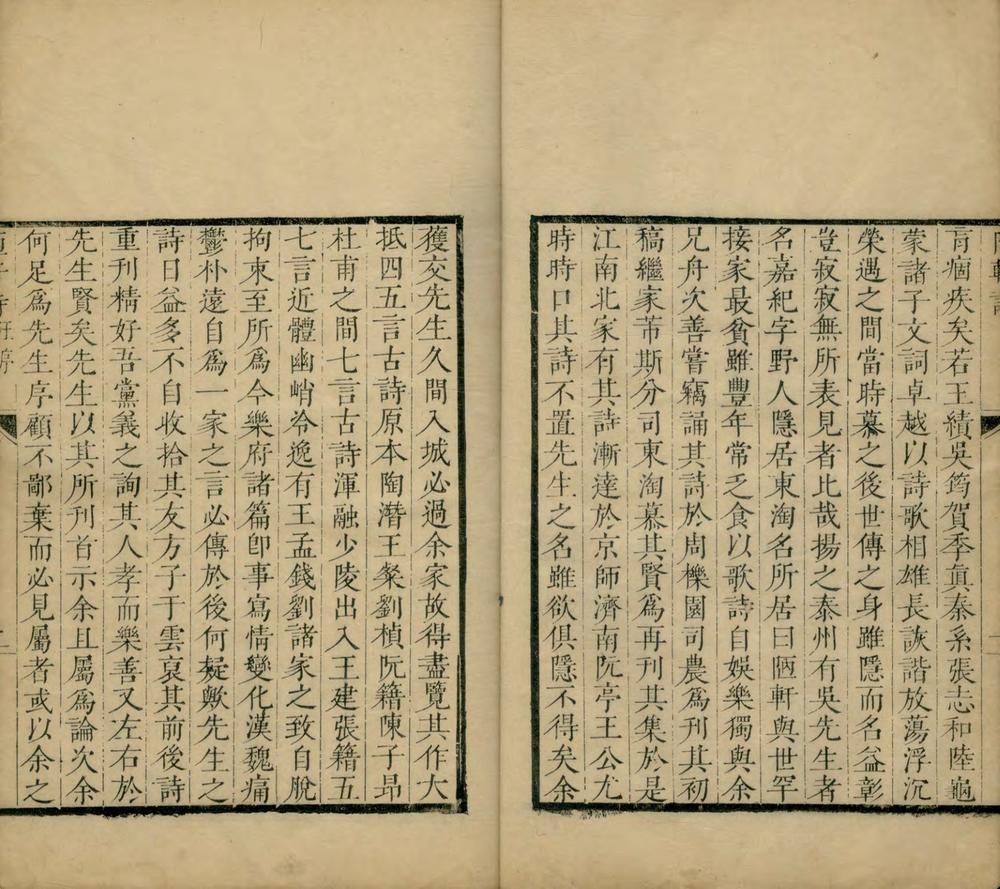 肓痼疾矣若王績吳筠賀季真秦系張志和陸龜
蒙諸子文詞卓越以詩歌相雄長詼諧放蕩浮沉
榮遇之間當時慕之後世傳之身雖隱而名益彰
豈寂寂無所表見者比哉揚之泰州有吳先生者
名嘉紀字野人隱居東淘名所居曰陋軒與世罕
接家最貧雖豐年常乏食以歌詩自娛樂獨與余
兄舟次善嘗竊誦其詩於周櫟園司農為刊其初
稿繼家芾斯分司東淘慕其賢為再刊其集於是
江南北家有其詩漸達於京師濟南阮亭王公尤
時時口其詩不置先生之名雖欲俱隱不得矣余
獲交先生久間入城必過余家故得盡覽其作大
抵四五言古詩原本陶潛王粲劉楨阮籍陳子昂
杜甫之間七言古詩渾融少陵出入王建張籍五
七言近體幽峭冷逸有王孟錢劉諸家之致自脫
拘束至所為今樂府諸篇卽事寫情變化漢魏痛
鬱朴遠自為一家之言必傳於後何疑歟先生之
詩日益多不自收拾其友方子于雲哀其前後詩
重刊精好吾黨義之詢其人孝而樂善又左右於
先生賢矣先生以其所刊首示余且屬為論次余
何足為先生序顧不鄙棄而必見屬者或以余之